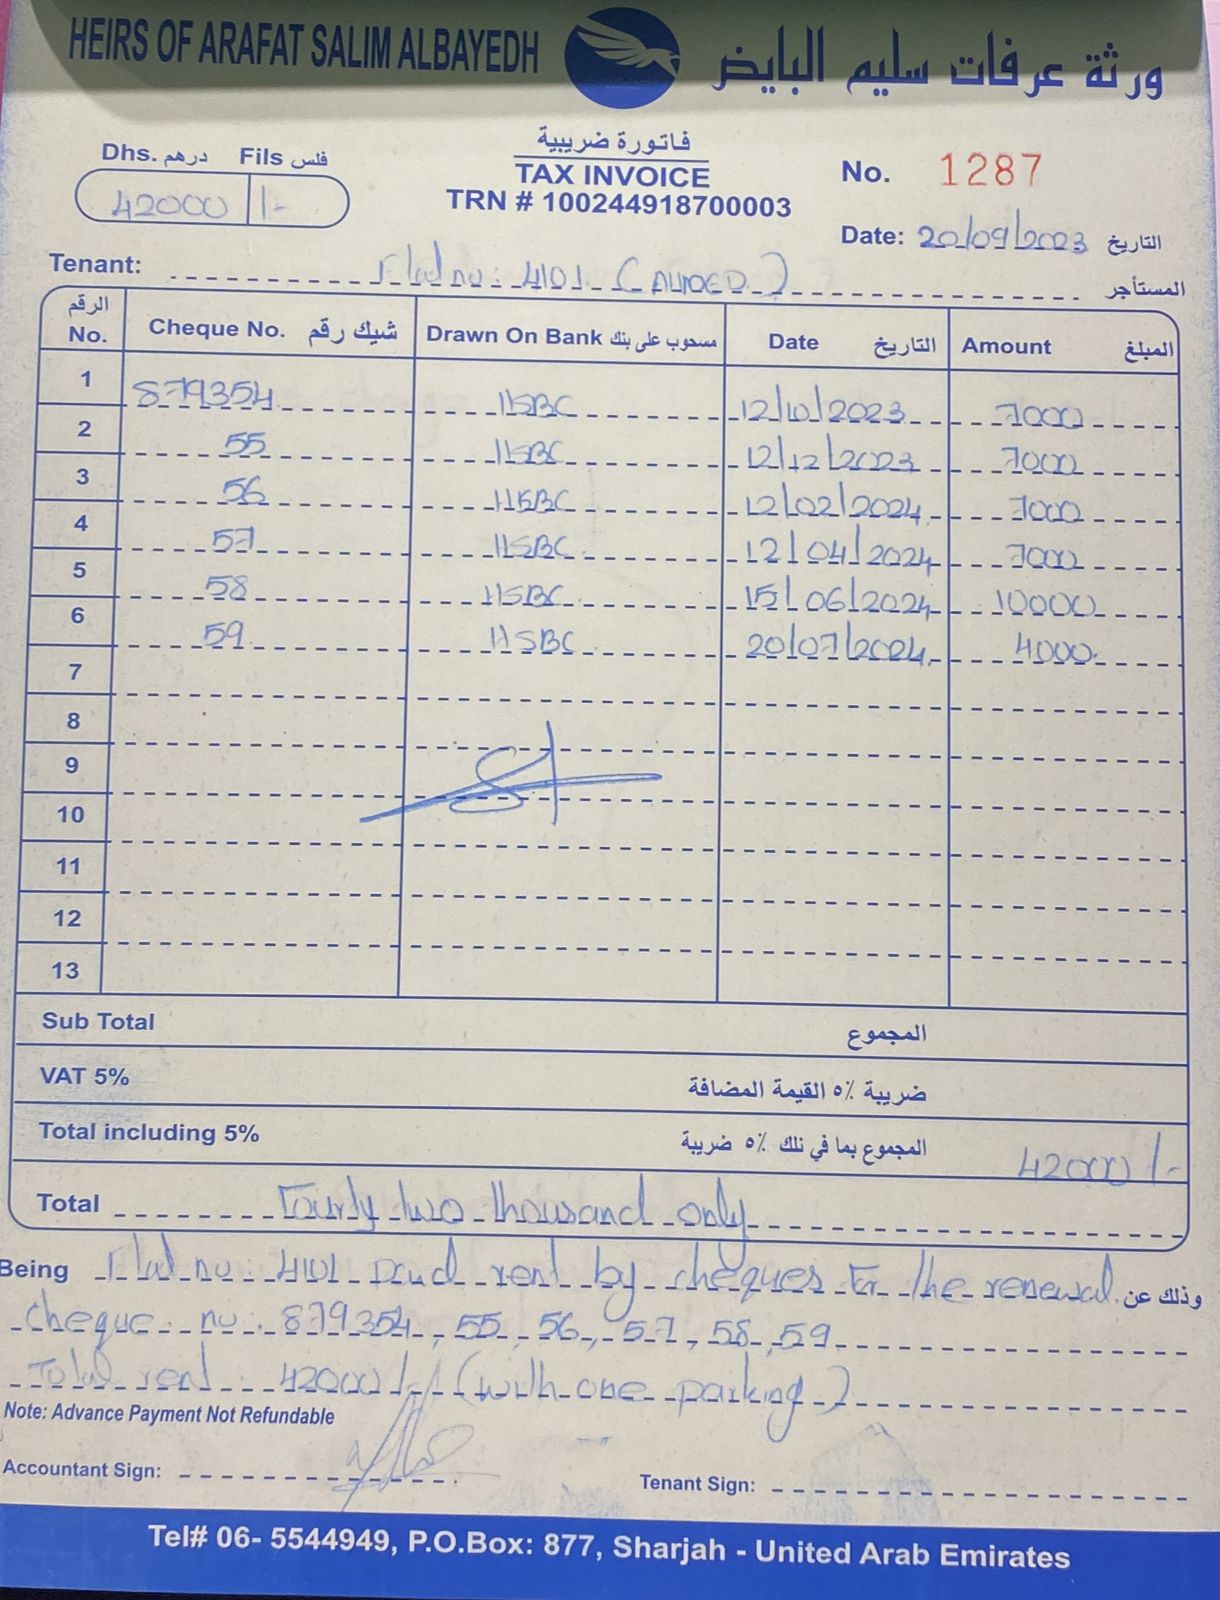 HEIRS OF ARAFAT SALIM ALBAYEDH ورثة عرفات سليم البايض
فاتورة ضريبية
Dhs. درهم Fils فلس
TAX INVOICE
No. 1287
42000 /-
TRN # 100244918700003
Date: 20/09/2023 التاريخ
Tenant: Flat no: 4101 ( ) المستأجر
الرقم No. Cheque No. شيك رقم Drawn On Bank مسحوب على بنك Date التاريخ Amount المبلغ
1 879354 HSBC 12/10/2023 7000
2 55 HSBC 12/12/2023 7000
3 56 HSBC 12/02/2024 7000
4 57 HSBC 12/04/2024 7000
5 58 HSBC 15/06/2024 10000
6 59 HSBC 20/07/2024 4000
7
8
9
10
11
12
13
Sub Total المجموع
VAT 5% ضريبة ٥٪ القيمة المضافة
Total including 5% المجموع بما في ذلك ٥٪ ضريبة 42000/-
Total Fourty two thousand only
Being Flat no: 4101 paid rent by cheques for the renewal وذلك عن
cheque no: 879354, 55, 56, 57, 58, 59
Total rent: 42000/- (with one parking)
Note: Advance Payment Not Refundable
Accountant Sign:
Tenant Sign:
Tel# 06- 5544949, P.O.Box: 877, Sharjah - United Arab Emirates